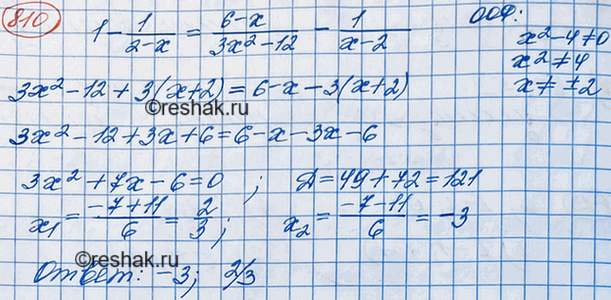 810
1 - 1/(2-x) = (6-x)/(3x²-12) - 1/(x-2)
ООФ:
x²-4≠0
x²≠4
x≠±2
3x²-12+3(x+2)=6-x-3(x+2)
©reshak.ru
3x²-12+3x+6=6-x-3x-6
3x²+7x-6=0 ; Д=49+72=121
x₁=(-7+11)/6=2/3; x₂=(-7-11)/6=-3
Ответ: -3; 2/3